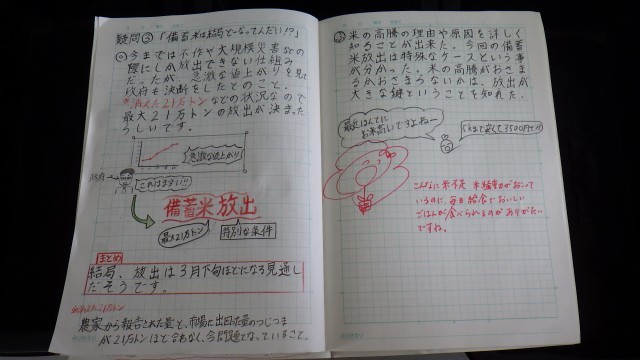 疑問③「備蓄米は結局どーなってんだい!?」
◎今までは不作や大規模災害などの
際にしか放出できない仕組み
だったが、急激な値上がりを見て
政府も決断をしたとのこと。
※消えた21万トンなどの状況なので
最大21万トンの放出が決まった
らしいです。
急激な値上がり
政府
これはまずい…
備蓄米放出
最大21万トン
特別な条件
まとめ
結局、放出は3月下旬ほどになる見通し
だそうです。
農家から報告された量と、市場に出回った量のつじつま
が21万トンほど合わなく、今問題となっていること。
米の高騰の理由や原因を詳しく
知ることが出来た。今回の備蓄
米放出は特殊なケースという事
が分かった。米の高騰がおさま
るかおさまらないかは、放出が
大きな鍵ということを知れた。
最近ほんとに
お米高いですよね〜
こんなに米不足
いるのに、毎日給食でおいしい
ごはんが食べられるのがありがたい
ですね。